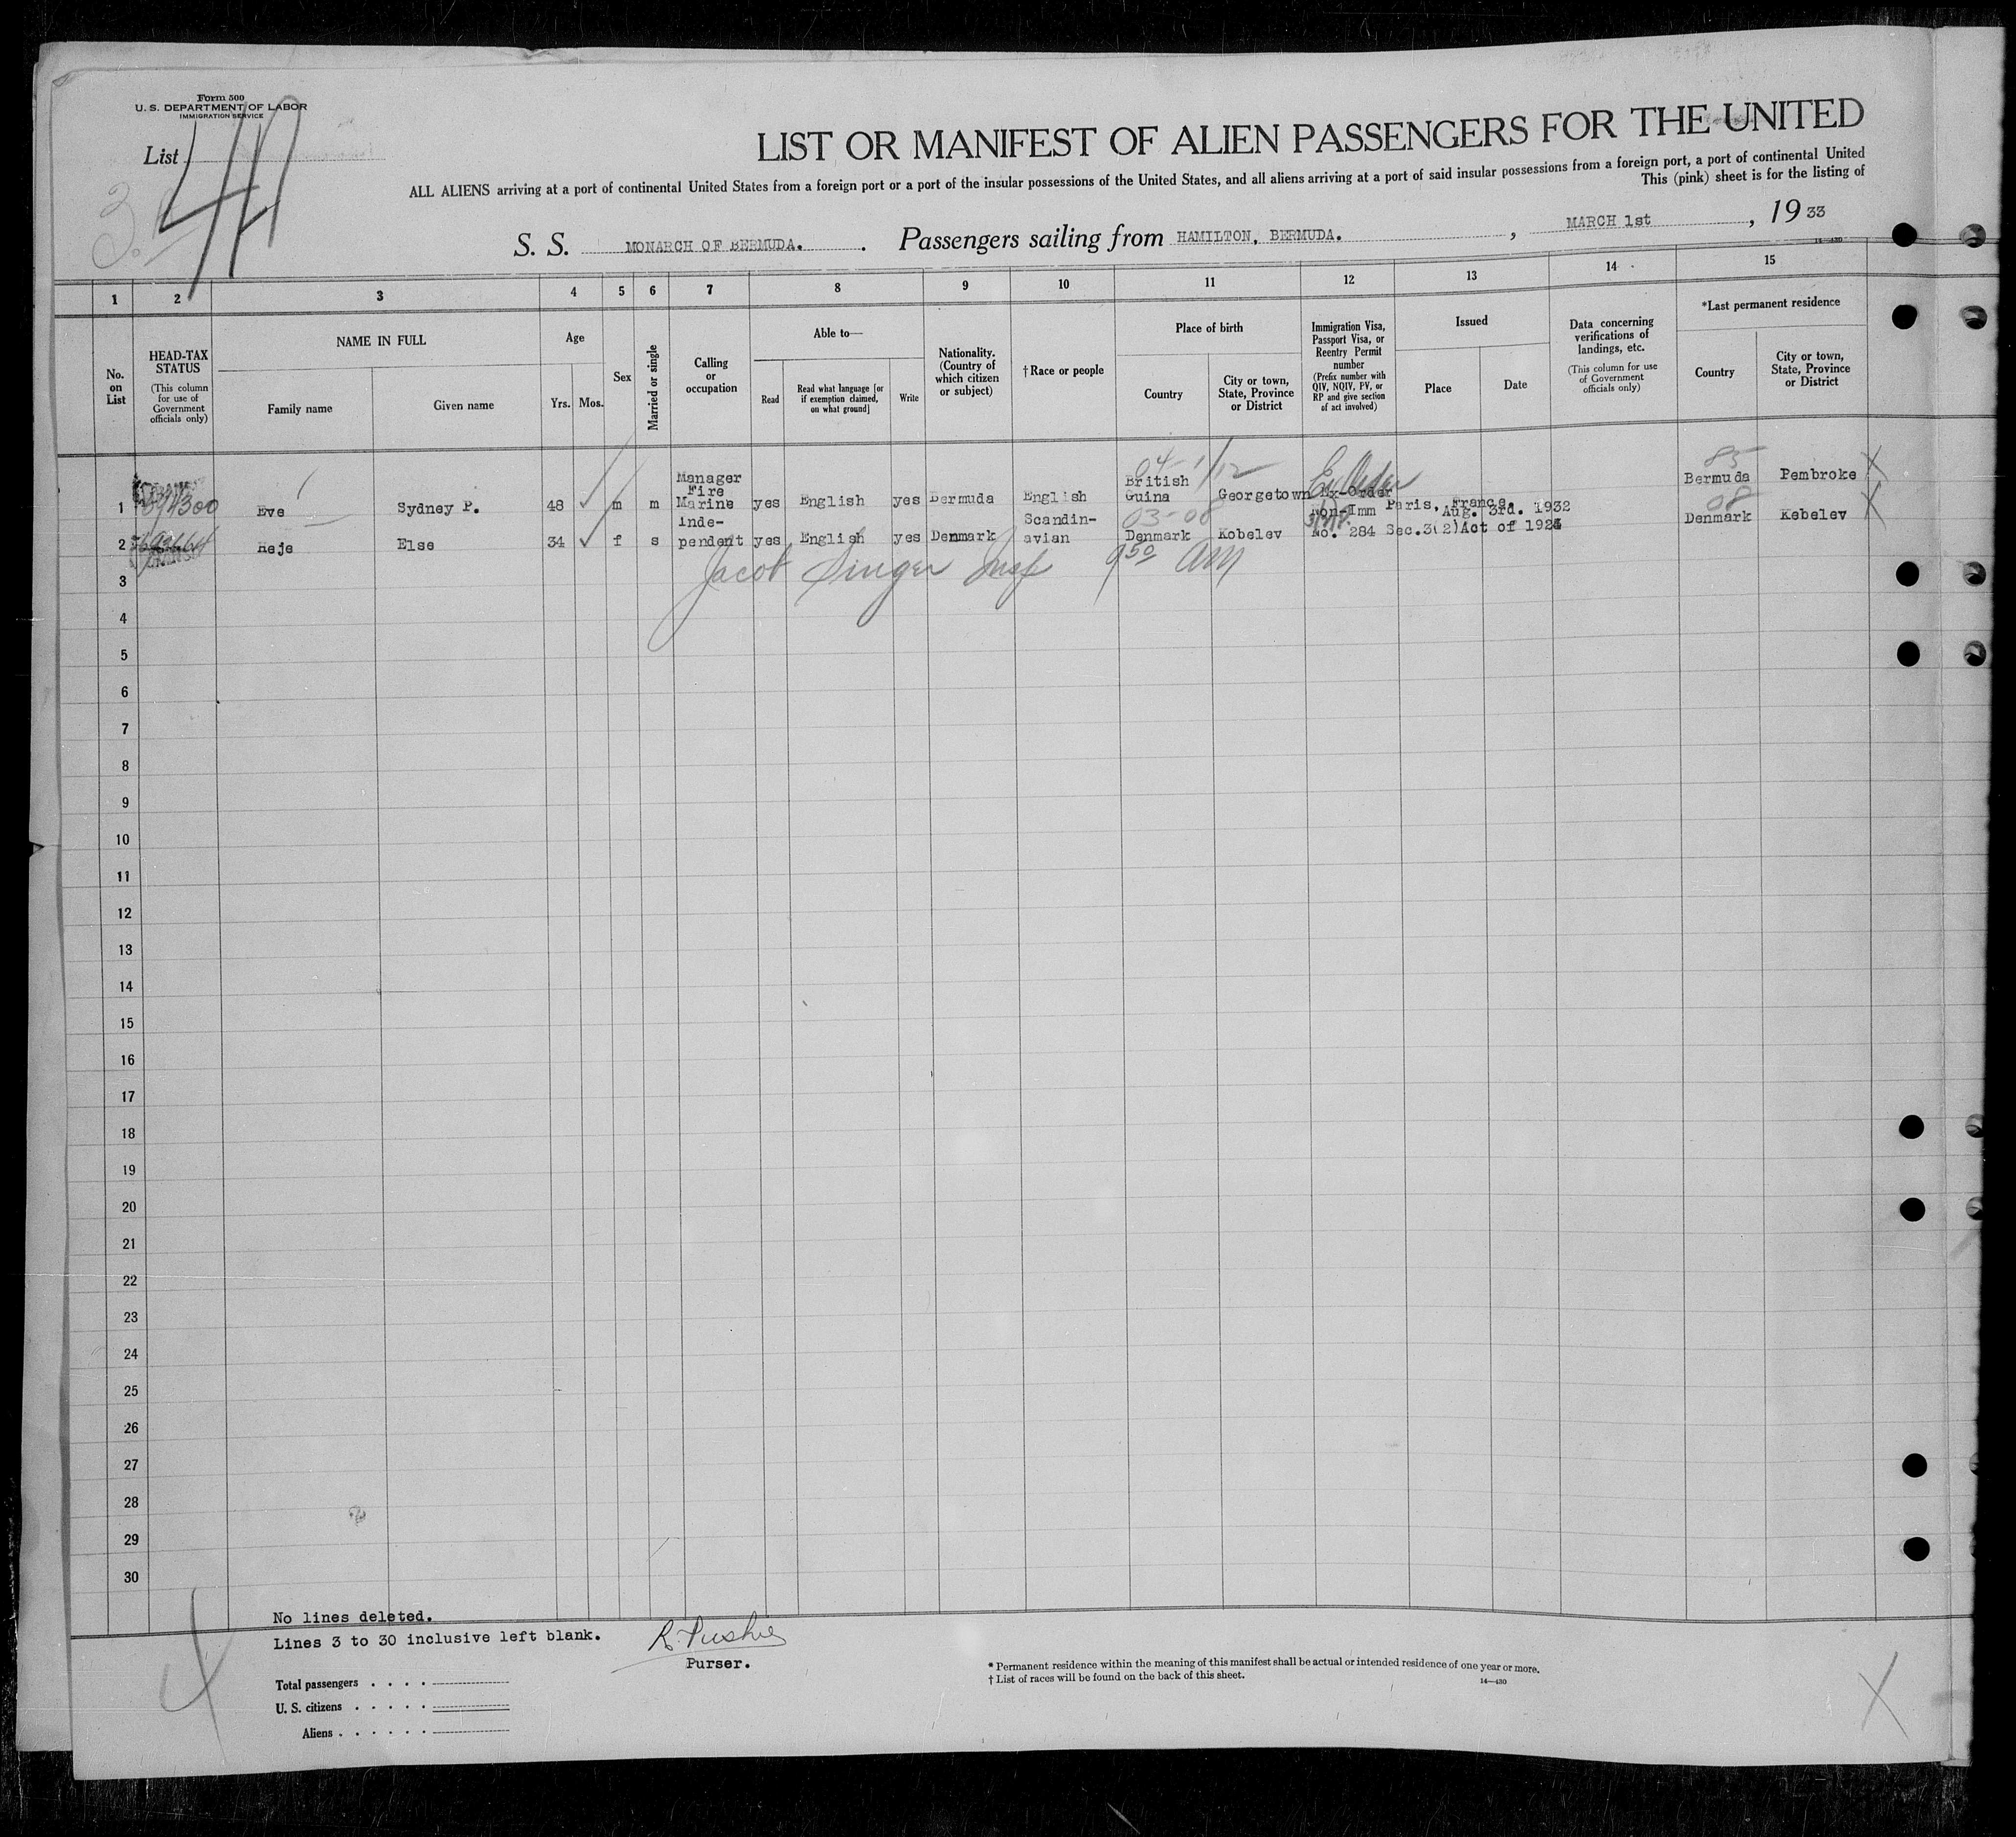 Form 500
U. S. DEPARTMENT OF LABOR
IMMIGRATION SERVICE
List
LIST OR MANIFEST OF ALIEN PASSENGERS FOR THE UNITED
ALL ALIENS arriving at a port of continental United States from a foreign port or a port of the insular possessions of the United States, and all aliens arriving at a port of said insular possessions from a foreign port, a port of continental United
This (pink) sheet is for the listing of
S. S. MONARCH OF BERMUDA. Passengers sailing from HAMILTON, BERMUDA. , MARCH 1st , 19 33
14—430
1 2 3 4 5 6 7 8 9 10 11 12 13 14 15
No. on List
HEAD-TAX STATUS
(This column for use of Government officials only)
NAME IN FULL
Family name
Given name
Age
Yrs. Mos.
Sex
Married or single
Calling or occupation
Able to—
Read
Read what language [or if exemption claimed, on what ground]
Write
Nationality. (Country of which citizen or subject)
†Race or people
Place of birth
Country
City or town, State, Province or District
Immigration Visa, Passport Visa, or Reentry Permit number
(Prefix number with QIV, NQIV, PV, or RP and give section of act involved)
Issued
Place
Date
Data concerning verifications of landings, etc.
(This column for use of Government officials only)
*Last permanent residence
Country
City or town, State, Province or District
04-1/12
85
1 Eve Sydney P. 48 m m Manager Fire Marine yes English yes Bermuda English British Guina Georgetown Ex-Order Bermuda Pembroke
03-08
08
2 Reje Else 34 f s Inde-pendent yes English yes Denmark Scandin-avian Denmark Kobelev Non-Imm No. 284 Paris, France. Aug. 3rd. 1932 Sec.3(2)Act of 1924 Denmark Kebelev
Jacob Singer Insp 9 50 AM
3
4
5
6
7
8
9
10
11
12
13
14
15
16
17
18
19
20
21
22
23
24
25
26
27
28
29
30
No lines deleted.
Lines 3 to 30 inclusive left blank.
Purser.
Total passengers
U. S. citizens
Aliens
* Permanent residence within the meaning of this manifest shall be actual or intended residence of one year or more.
† List of races will be found on the back of this sheet.
14—430